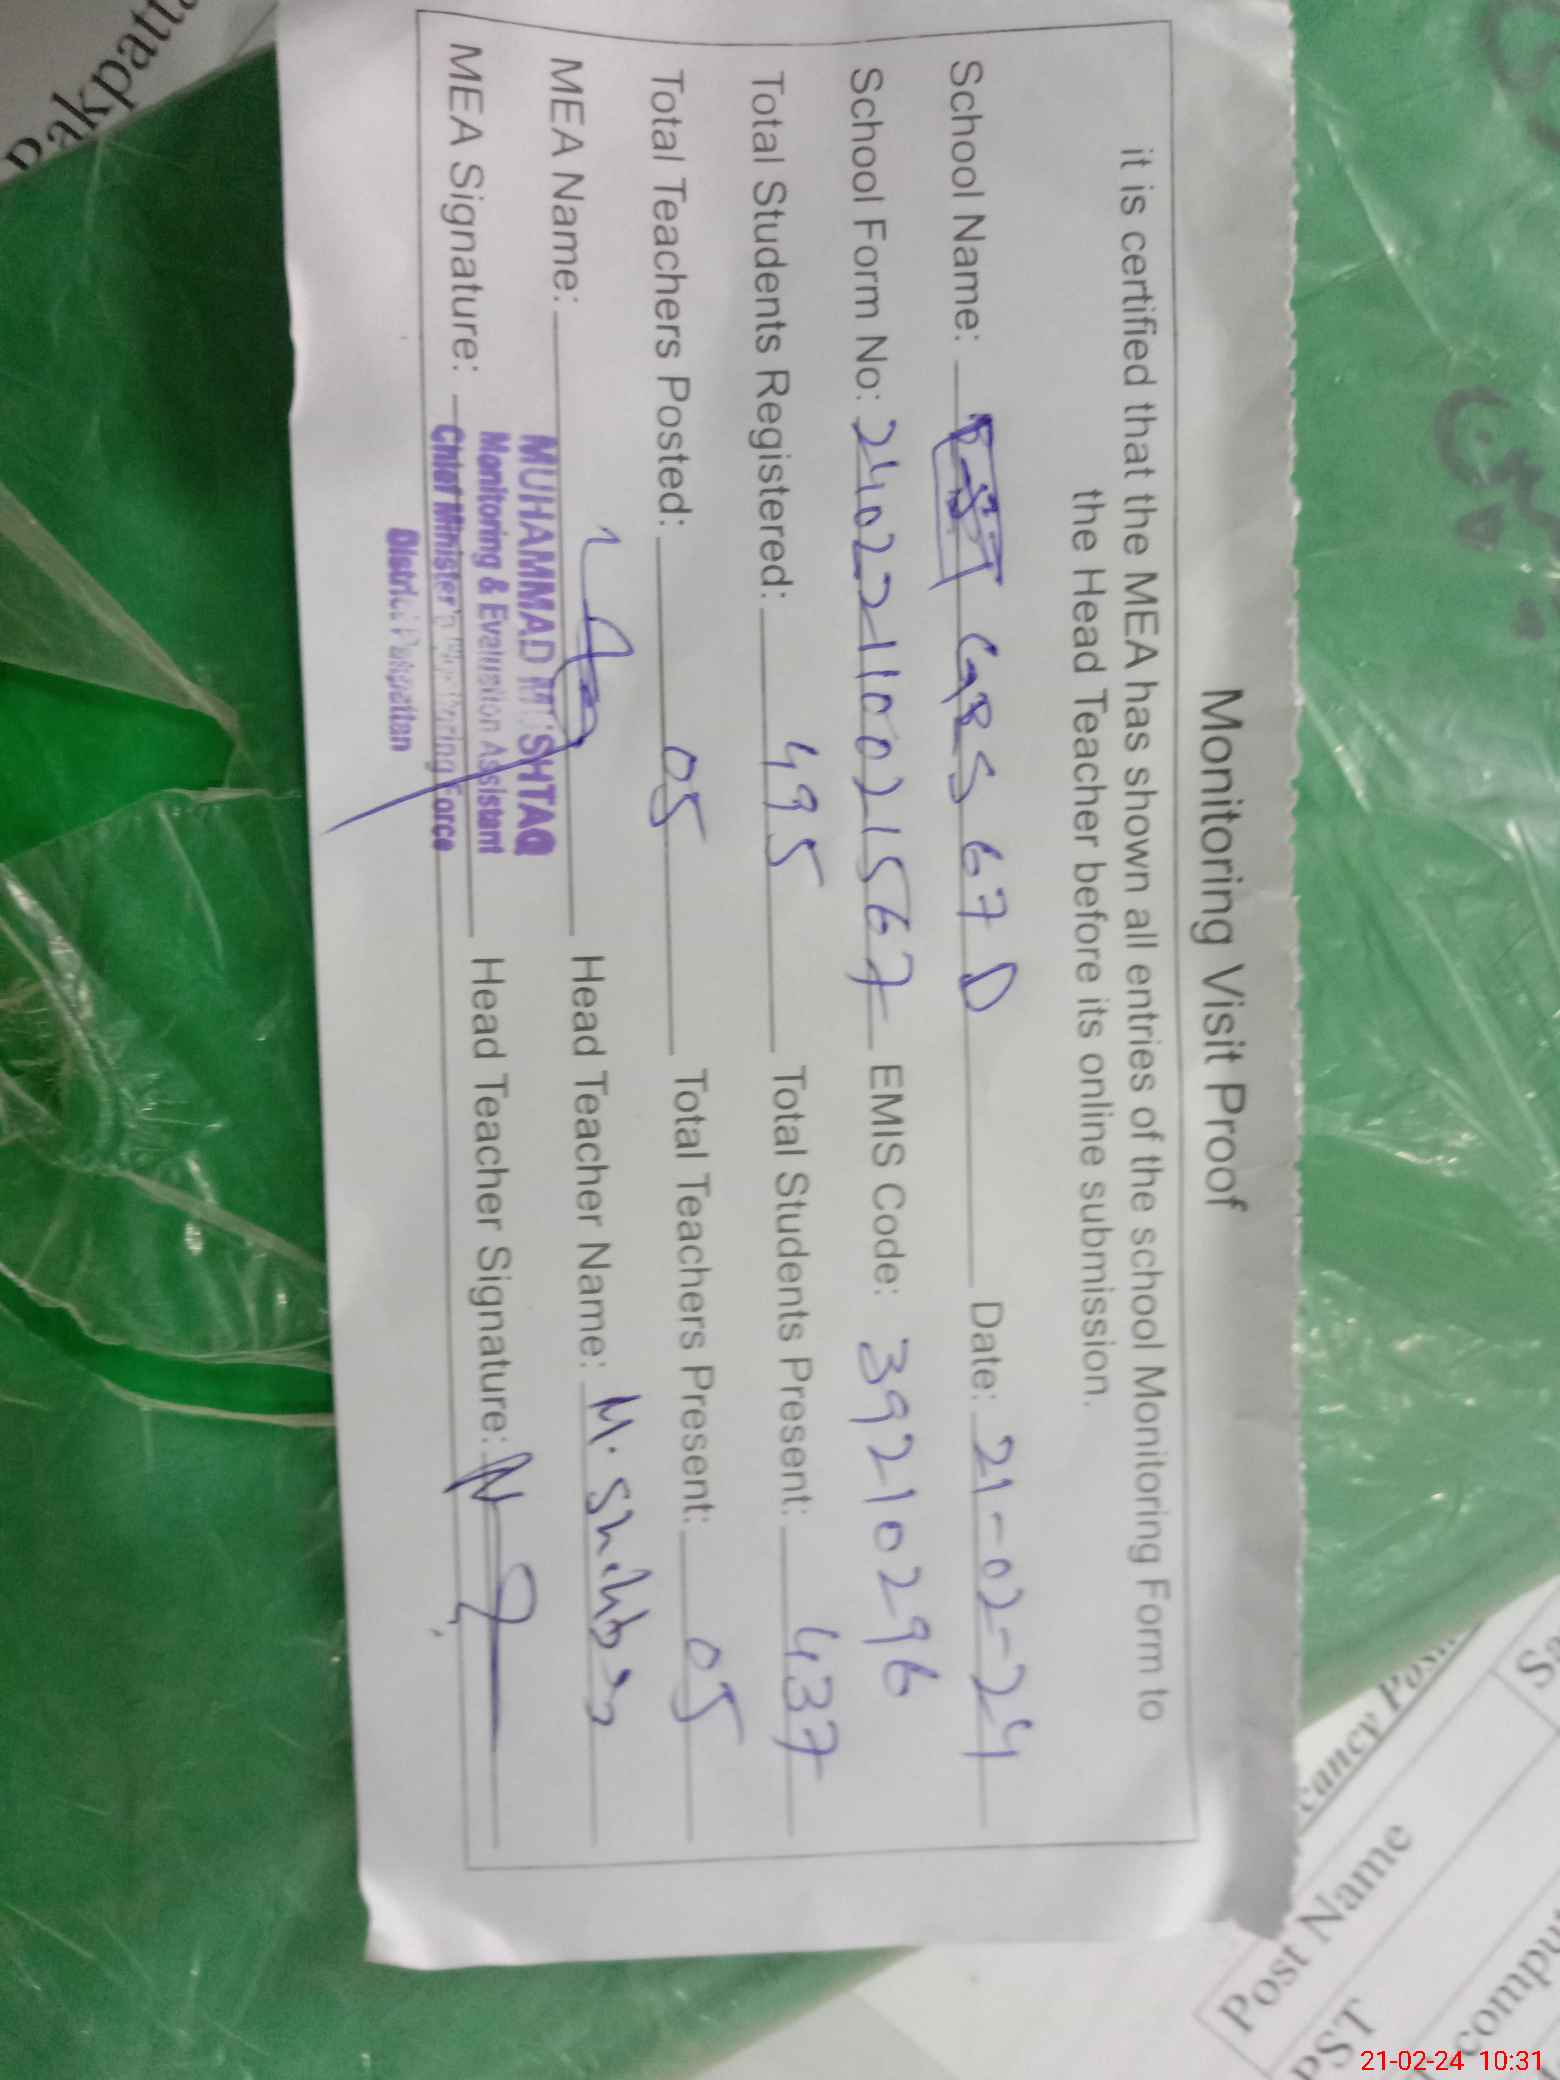 Monitoring Visit Proof
it is certified that the MEA has shown all entries of the school Monitoring Form to
the Head Teacher before its online submission.
School Name: GPS 67 D Date: 21-02-24
School Form No: 24022110021567 EMIS Code: 39210296
Total Students Registered: 495 Total Students Present: 437
Total Teachers Posted: 05 Total Teachers Present: 05
MEA Name: Head Teacher Name: M.
MUHAMMAD MUSHTAQ
Monitoring & Evaluation Assistant
MEA Signature: Head Teacher Signature:
Chief Minister's Monitoring Force
District Pakpattan
Pakpatta
cancy
Post Name
PST
compu
21-02-24 10:31